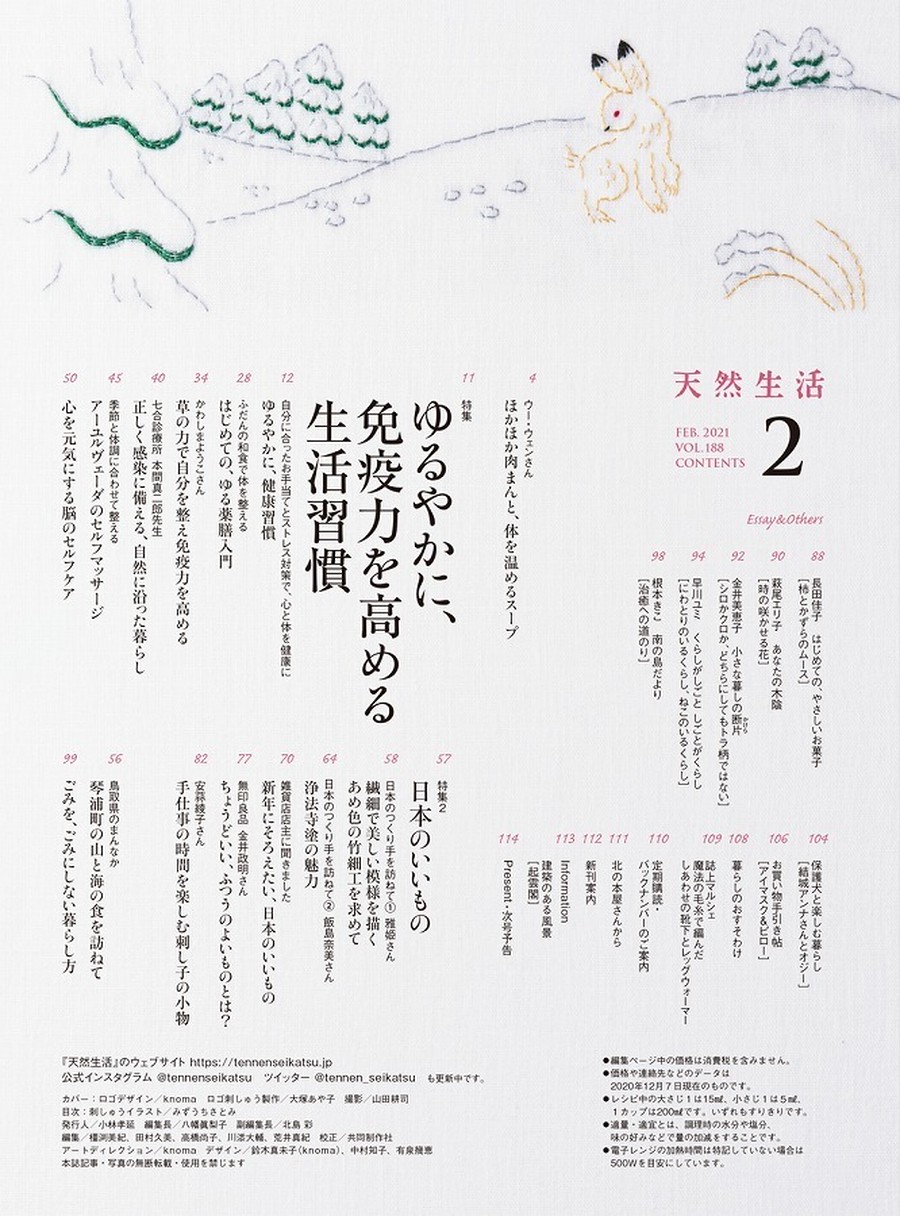 天然生活
2
FEB. 2021
VOL.188
CONTENTS
4
ウー・ウェンさん
ほかほか肉まんと、体を温めるスープ
11
特集
ゆるやかに、
免疫力を高める
生活習慣
12
自分に合ったお手当てとストレス対策で、心と体を健康に
ゆるやかに、健康習慣
28
ふだんの和食で体を整える
はじめての、ゆる薬膳入門
34
かわしまようこさん
草の力で自分を整え免疫力を高める
40
七合診療所 本間真二郎先生
正しく感染に備える、自然に沿った暮らし
45
季節と体調に合わせて整える
アーユルヴェーダのセルフマッサージ
50
心を元気にする脳のセルフケア
57
特集2
日本のいいもの
58
日本のつくり手を訪ねて① 雅姫さん
繊細で美しい模様を描く
あめ色の竹細工を求めて
64
日本のつくり手を訪ねて② 飯島奈美さん
浄法寺塗の魅力
70
雑貨店店主に聞きました
新年にそろえたい、日本のいいもの
77
無印良品 金井政明さん
ちょうどいい、ふつうのよいものとは?
82
安蒜綾子さん
手仕事の時間を楽しむ刺し子の小物
56
鳥取県のまんなか
琴浦町の山と海の食を訪ねて
99
ごみを、ごみにしない暮らし方
Essay&Others
88
長田佳子 はじめての、やさしいお菓子
[柿とかずらのムース]
90
萩尾エリ子 あなたの木陰
[時の咲かせる花]
92
金井美恵子 小さな暮しの断片
かけら
[シロかクロか、どちらにしてもトラ柄ではない]
94
早川ユミ くらしがしごと しごとがくらし
[にわとりのいるくらし、ねこのいるくらし]
98
根本きこ 南の島だより
[治癒への道のり]
104
保護犬と楽しむ暮らし
[結城アンナさんとオジー]
106
お買い物手引き帖
[アイマスク&ピロー]
108
暮らしのおすそわけ
109
誌上マルシェ
魔法の毛糸で編んだ
しあわせの靴下とレッグウォーマー
110
定期購読・
バックナンバーのご案内
111
北の本屋さんから
112
新刊案内
113
Information
建築のある風景
[起雲閣]
114
Present・次号予告
『天然生活』のウェブサイト https://tennenseikatsu.jp
公式インスタグラム @tennenseikatsu ツイッター @tennen_seikatsu も更新中です。
カバー:ロゴデザイン/knoma ロゴ刺しゅう製作/大塚あや子 撮影/山田耕司
目次:刺しゅうイラスト/みずうちさとみ
発行人/小林孝延 編集長/八幡眞梨子 副編集長/北島 彩
編集/榧渕美紀、田村久美、高橋尚子、川添大輔、荒井真紀 校正/共同制作社
アートディレクション/knoma デザイン/鈴木真未子(knoma)、中村知子、有泉簡恵
本誌記事・写真の無断転載・使用を禁じます
●編集ページ中の価格は消費税を含みません。
●価格や連絡先などのデータは
2020年12月7日現在のものです。
●レシピ中の大さじ1は15㎖、小さじ1は5㎖、
1カップは200㎖です。いずれもすりきりです。
●適量・適宜とは、調理時の水分や塩分、
味の好みなどで量の加減をすることです。
●電子レンジの加熱時間は特記していない場合は
500Wを目安にしています。